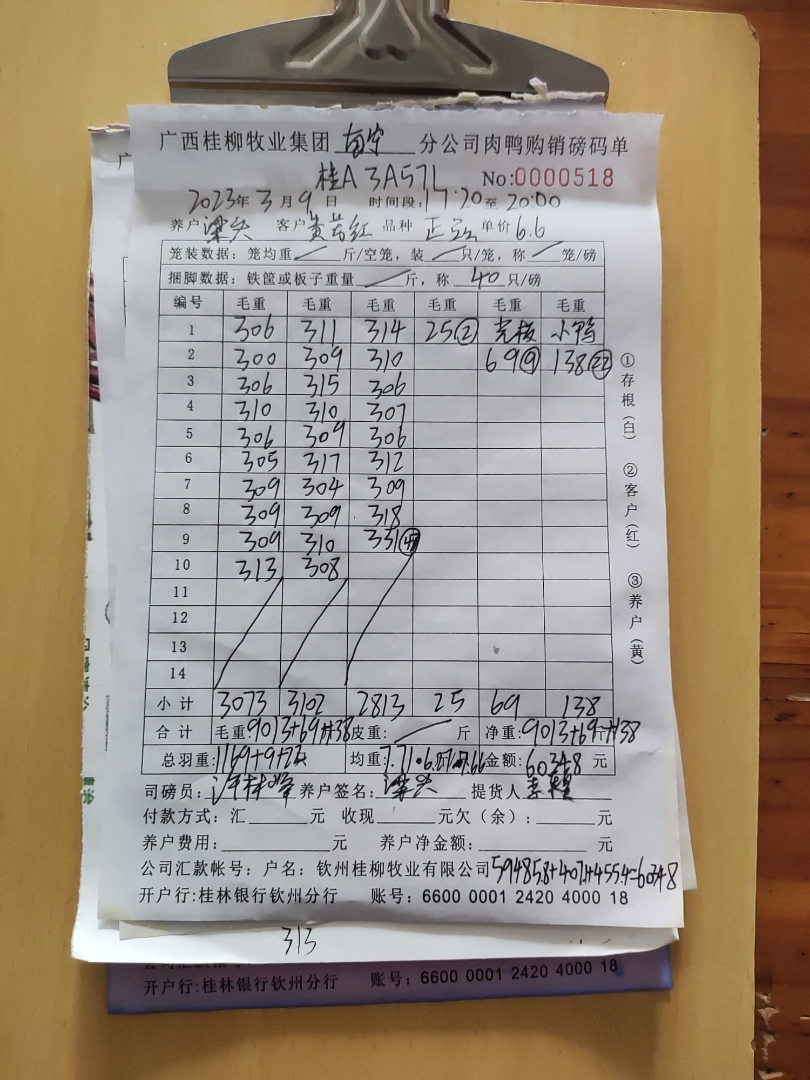 广西桂柳牧业集团 南宁 分公司肉鸭购销磅码单
桂A 3A571 No:0000518
2023年3月9日 时间段:17:20至20:00
养户 梁 客户 黄 红 品种 正 单价6.6
笼装数据：笼均重 斤/空笼，装 只/笼，称 笼/磅
捆脚数据：铁筐或板子重量 斤，称 40 只/磅
编号 毛重 毛重 毛重 毛重 毛重 毛重
1 306 311 314 25② 小鸭
2 300 309 310 69⑨ 138㉒
3 306 315 306
4 310 310 307
5 306 309 306
6 305 317 312
7 309 304 309
8 309 309 318
9 309 310 331
10 313 308
11
12
13
14
小计 3073 3102 2813 25 69 138
合计 毛重9013+69+138 皮重: 斤 净重:9013+69+138
总羽重:1169+9+22 均重:7.71 金额:60348 元
司磅员: 养户签名:梁 提货人 李
付款方式：汇 元 收现 元欠（余）: 元
养户费用: 元 养户净金额: 元
公司汇款帐号：户名：钦州桂柳牧业有限公司 59485.8+407.1+455.4=60348
开户行:桂林银行钦州分行 账号：6600 0001 2420 4000 18
①存根（白） ②客户（红） ③养户（黄）
313
开户行:桂林银行钦州分行 账号：6600 0001 2420 4000 18